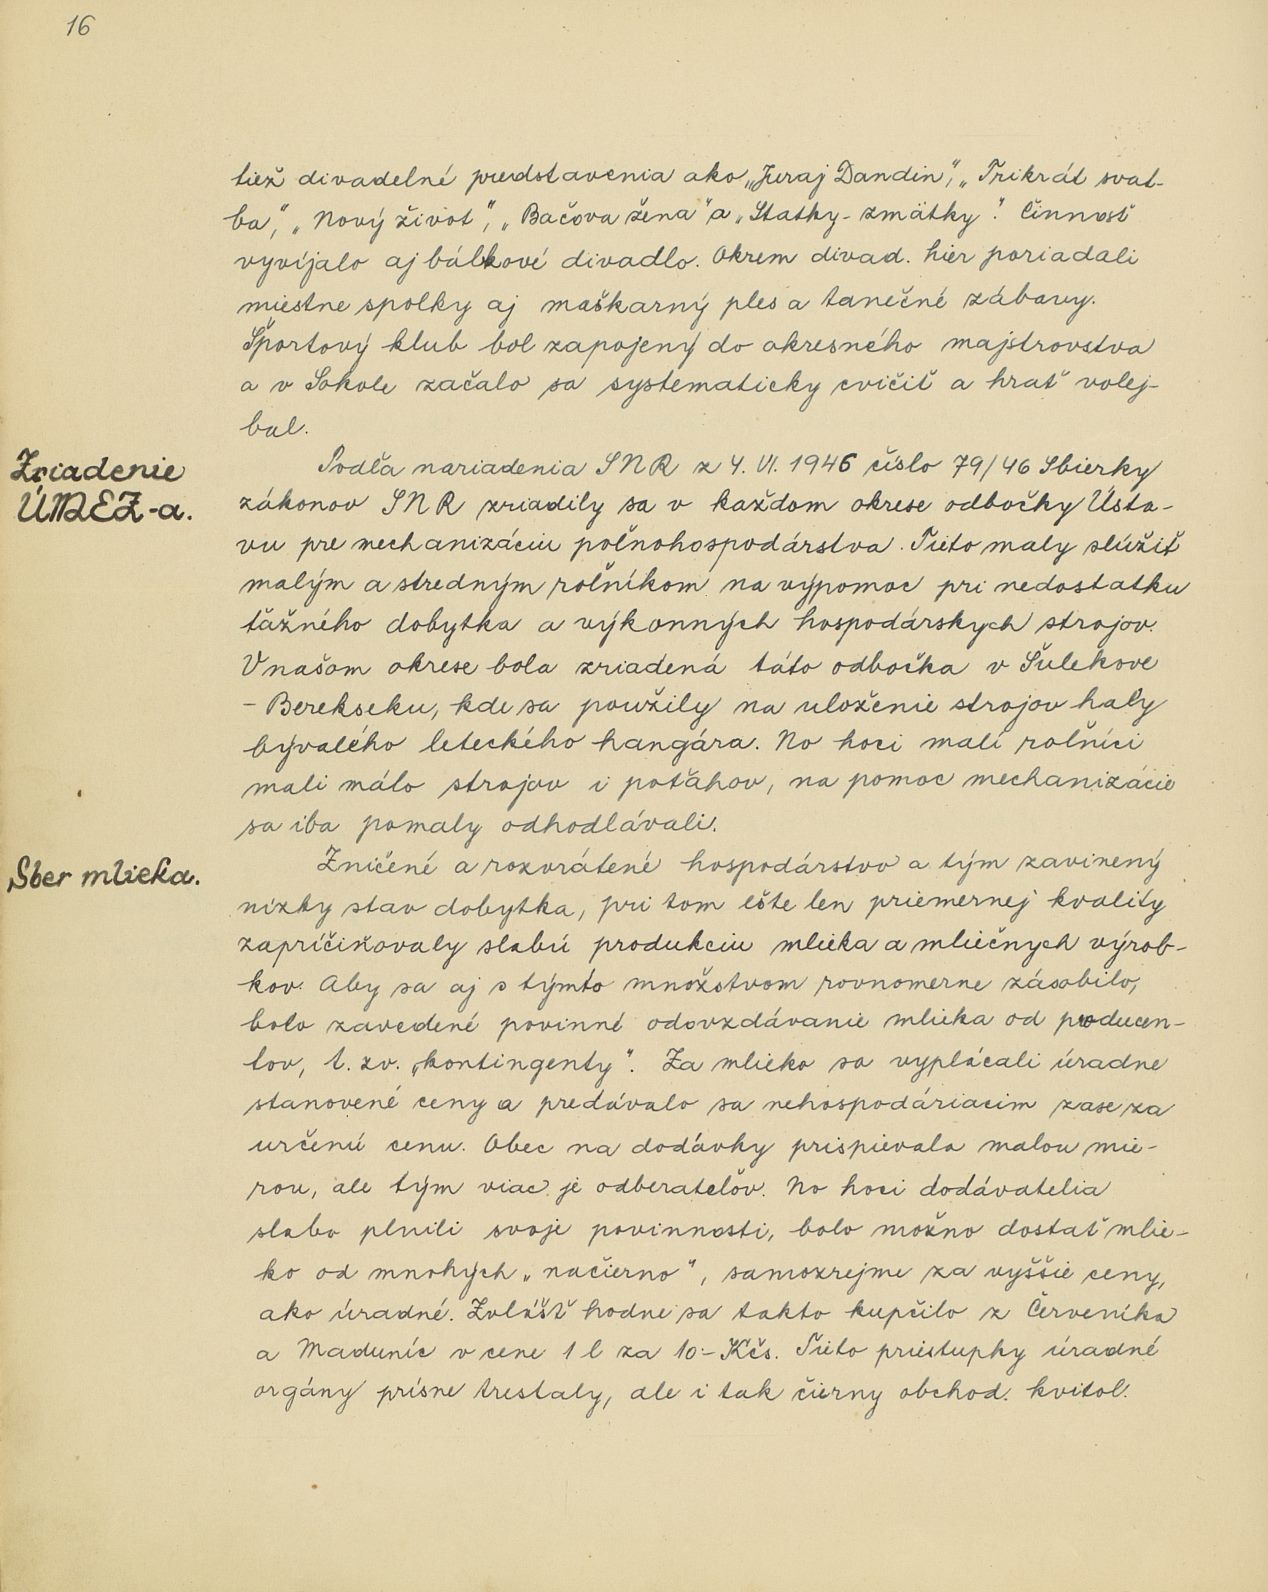 16
tiež divadelné predstavenia ako „Juraj Dandin“, „Trikrát svat-
ba“, „Nový život“, „Bačova žena“ a „Statky-zmätky“. Činnosť
vyvíjalo aj bábkové divadlo. Okrem divad. hier poriadali
miestne spolky aj maškarný ples a tanečné zábavy.
Športový klub bol zapojený do okresného majstrovstva
a v Sokole začalo sa systematicky cvičiť a hrať volej-
bal.
Zriadenie
ÚMEZ-a.
Podľa nariadenia SNR z 4. VI. 1946 číslo 79/46 Sbierky
zákonov SNR zriadily sa v každom okrese odbočky Ústa-
vu pre mechanizáciu poľnohospodárstva. Tieto maly slúžiť
malým a stredným roľníkom na výpomoc pri nedostatku
ťažného dobytka a výkonných hospodárskych strojov.
V našom okrese bola zriadená táto odbočka v Šulekove
- Berekseku, kde sa použily na uloženie strojov haly
bývalého leteckého hangára. No hoci malí roľníci
mali málo strojov i poťahov, na pomoc mechanizácie
sa iba pomaly odhodlávali.
Sber mlieka.
Zničené a rozvrátené hospodárstvo a tým zavinený
nízky stav dobytka, pri tom ešte len priemernej kvality
zapríčiňovaly slabú produkciu mlieka a mliečnych výrob-
kov. Aby sa aj s týmto množstvom rovnomerne zásobilo,
bolo zavedené povinné odovzdávanie mlieka od producen-
tov, t. zv. „kontingenty“. Za mlieko sa vyplácali úradne
stanovené ceny a predávalo sa nehospodáriacim zase za
určenú cenu. Obec na dodávky prispievala malou mie-
rou, ale tým viac je odberateľov. No hoci dodávatelia
slabo plnili svoje povinnosti, bolo možno dostať mlie-
ko od mnohých „načierno“, samozrejme za vyššie ceny,
ako úradné. Zvlášť hodne sa takto kupčilo z Červeníka
a Maduníc v cene 1 l za 10.- Kčs. Tieto priestupky úradné
orgány prísne trestaly, ale i tak čierny obchod kvitol.